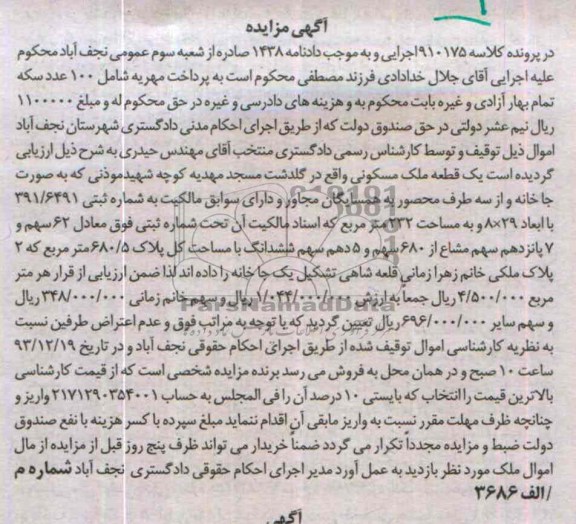 آگهی مزایده
در پرونده کلاسه ۹۱۰۱۷۵اجرایی و به موجب دادنامه ۱۴۳۸ صادره از شعبه سوم عمومی نجف آباد محکوم
علیه اجرایی آقای جلال خدادادی فرزند مصطفی محکوم است به پرداخت مهریه شامل ۱۰۰ عدد سکه
تمام بهار آزادی و غیره بابت محکوم به و هزینه های دادرسی و غیره در حق محکوم له و مبلغ ۱۱۰۰۰۰۰
ریال نیم عشر دولتی در حق صندوق دولت که از طریق اجرای احکام مدنی دادگستری شهرستان نجف آباد
اموال ذیل توقیف و توسط کارشناس رسمی دادگستری منتخب آقای مهندس حیدری به شرح ذیل ارزیابی
گردیده است یک قطعه ملک مسکونی واقع در گلدشت مسجد مهدیه کوچه شهیدموذنی که به صورت
جا خانه و از سه طرف محصور به همسایگان مجاور و دارای سوابق مالکیت به شماره ثبتی ۳۹۱/۶۴۹۱
با ابعاد ۲۹×۸ و به مساحت ۲۳۲ متر مربع که اسناد مالکیت آن تحت شماره ثبتی فوق معادل ۶۲ سهم و
۷ پانزدهم سهم مشاع از ۶۸۰ سهم و ۵ دهم سهم ششدانگ با مساحت کل پلاک ۶۸۰/۵ متر مربع که ۲
پلاک ملکی خانم زهرا زمانی قلعه شاهی تشکیل یک جا خانه را داده اند لذا ضمن ارزیابی از قرار هر متر
مربع ۴/۵۰۰/۰۰۰ ریال جمعاً به ارزش ۱/۰۴۴/۰۰۰/۰۰۰ ریال و سهم خانم زمانی ۳۴۸/۰۰۰/۰۰۰ ریال
و سهم سایر ۶۹۶/۰۰۰/۰۰۰ ریال تعیین گردید که با توجه به مراتب فوق و عدم اعتراض طرفین نسبت
به نظریه کارشناسی اموال توقیف شده از طریق اجرای احکام حقوقی نجف آباد و در تاریخ ۹۳/۱۲/۱۹
ساعت ۱۰ صبح و در همان محل به فروش می رسد برنده مزایده شخصی است که از قیمت کارشناسی
بالاترین قیمت را انتخاب که بایستی ۱۰ درصد آن را فی المجلس به حساب ۲۱۷۱۲۹۰۳۵۴۰۰۱ واریز و
چنانچه ظرف مهلت مقرر نسبت به واریز مابقی آن اقدام ننماید مبلغ سپرده با کسر هزینه با نفع صندوق
دولت ضبط و مزایده مجدداً تکرار می گردد ضمناً خریدار می تواند ظرف پنج روز قبل از مزایده از مال
اموال ملک مورد نظر بازدید به عمل آورد مدیر اجرای احکام حقوقی دادگستری نجف آباد شماره م
/ الف ۳۶۸۶
آگهی
ParsNamadData